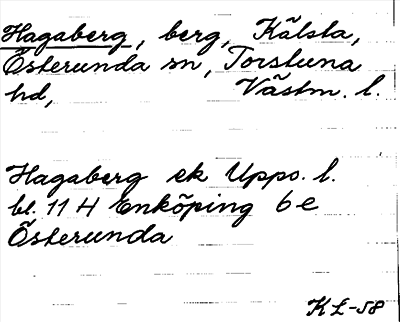 Hagaberg, berg, Kälsta,
Österunda sn, Torstuna
hd, Västm. l.
Hagaberg ek Upps. l.
bl. 11 H Enköping 6 e
Österunda
KL-58